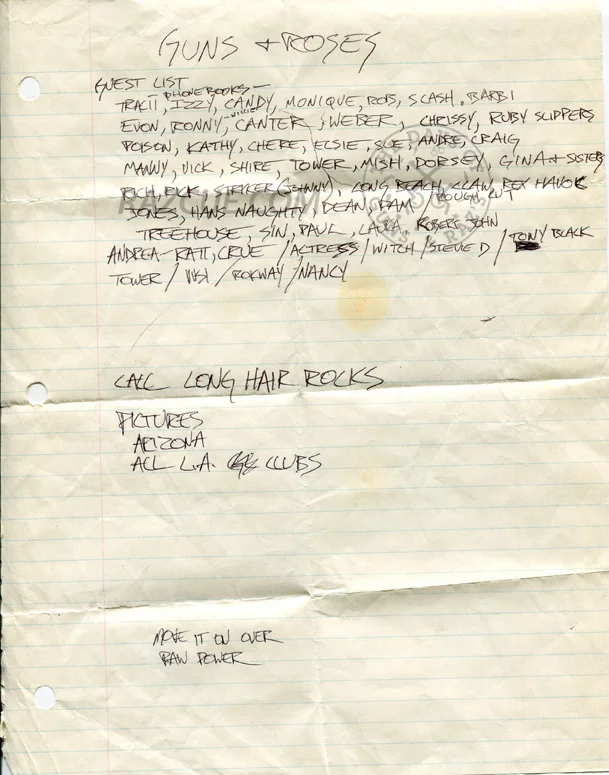 GUNS + ROSES
GUEST LIST
PHONE BOOKS —
TRACII, IZZY, CANDY, MONIQUE, ROB, SCASH, BARBI
WILLIE
EVON, RONNY, CANTER, WEBER, CHRISSY, RUBY SLIPPERS
POISON, KATHY, CHERE, ELSIE, SUE, ANDRE, CRAIG
MANNY, VICK, SHIRE, TOWER, MISH, DORSEY, GINA + SISTERS
RICH, RICK, STRYKER (JOHNNY), LONG BEACH, CLAW, REX HAVOK
JONES, HANS NAUGHTY, DEAN, PAM, ROUGH CUT
TREEHOUSE, SIN, PAUL, LAURA, ROBERT JOHN
ANDREA - RATT, CRUE / ACTRESS / WITCH / STEVIE D / TONY BLACK
TOWER / / ROKWAY / NANCY
CALL LONG HAIR ROCKS
PICTURES
ARIZONA
ALL L.A. CLUBS
MOVE IT ON OVER
RAW POWER
RAZCUE.COM